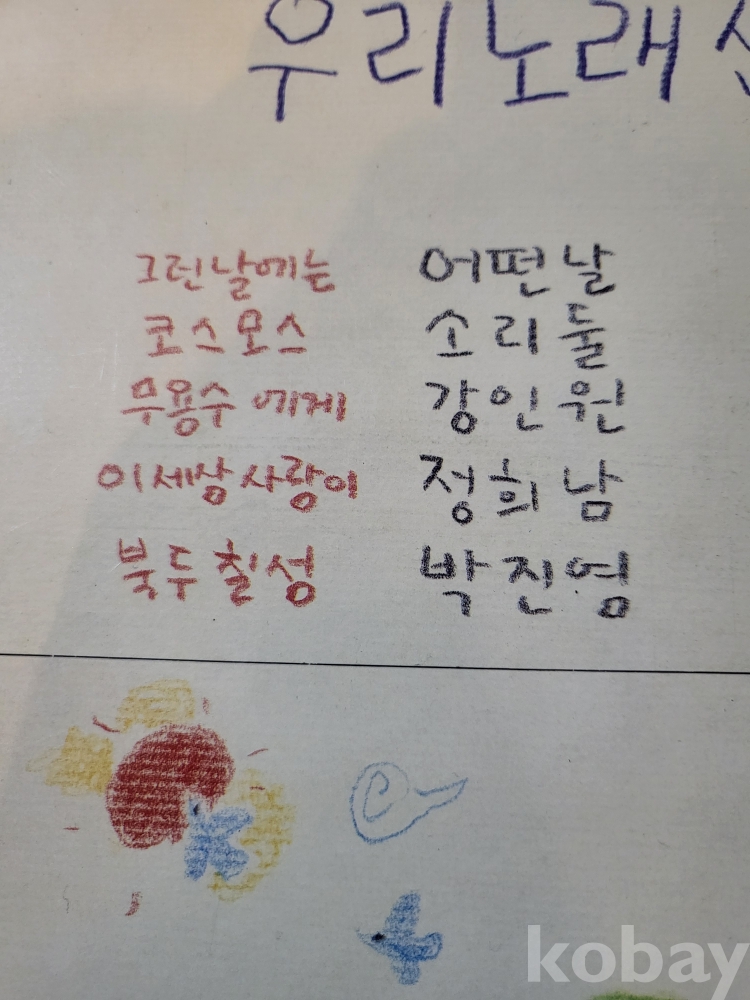 우리노래
그런날에는 어떤날
코스모스 소리둘
무용수에게 강인원
이세상사랑이 정희남
북두칠성 박진영
kobay